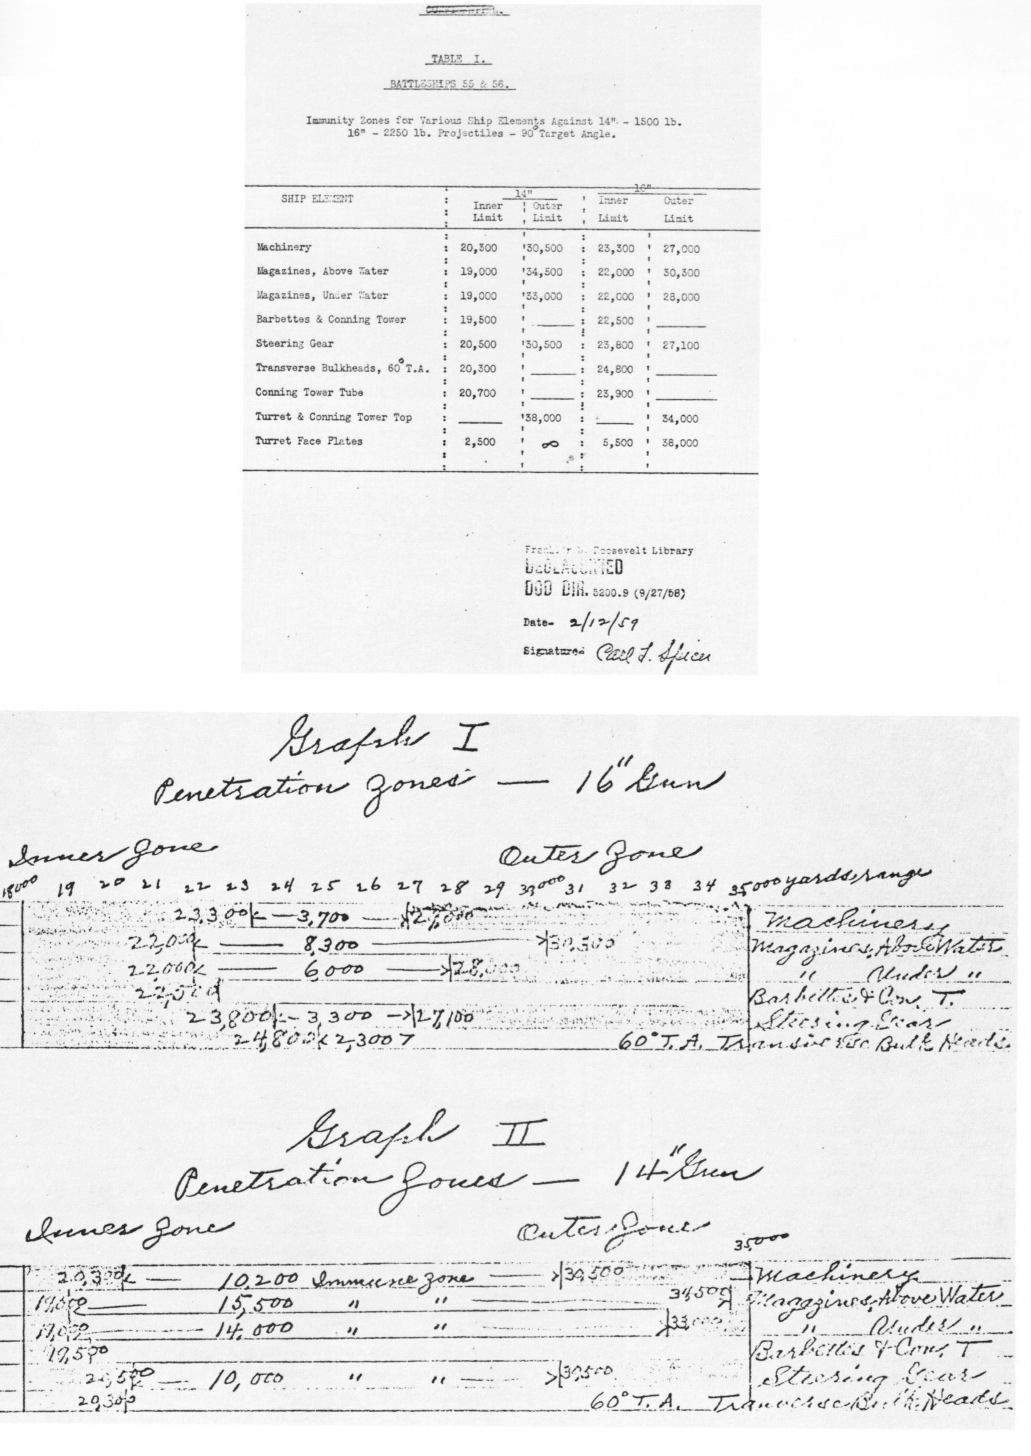 TABLE I.
BATTLESHIPS 55 & 56.
Immunity Zones for Various Ship Elements Against 14" - 1500 lb.
16" - 2250 lb. Projectiles - 90° Target Angle.
SHIP ELEMENT 14" 16"
Inner Limit Outer Limit Inner Limit Outer Limit
Machinery : 20,300 '30,500 : 23,300 ' 27,000
Magazines, Above Water : 19,000 '34,500 : 22,000 ' 30,300
Magazines, Under Water : 19,000 '33,000 : 22,000 ' 28,000
Barbettes & Conning Tower : 19,500 ' ____ : 22,500 ' ____
Steering Gear : 20,500 '30,500 : 23,800 ' 27,100
Transverse Bulkheads, 60° T.A. : 20,300 ' ____ : 24,800 ' ____
Conning Tower Tube : 20,700 ' ____ : 23,900 ' ____
Turret & Conning Tower Top : ____ '38,000 : ____ ' 34,000
Turret Face Plates : 2,500 ' ∞ : 5,500 ' 38,000
Roosevelt Library
DECLASSIFIED
DOD DIR. 5200.9 (9/27/58)
Date- 2/12/59
Signature- Carl L. Spicer
Graph I
Penetration Zones — 16" Gun
Inner Zone Outer Zone
18000 19 20 21 22 23 24 25 26 27 28 29 30000 31 32 33 34 35000 yards, range
23,300 — 3,700 — 27,000 Machinery
22,000 — 8,300 — 30,300 Magazines, Above Water
22,000 — 6,000 — 28,000 " Under "
22,500 Barbettes & Con. T.
23,800 — 3,300 → 27,100 Steering Gear
24,800 < 2,300 7 60° T.A. Transverse Bulk Heads
Graph II
Penetration Zones — 14" Gun
Inner Zone Outer Zone
35,000
20,300 — 10,200 Immune zone — 30,500 Machinery
19,000 — 15,500 " " 34,500 Magazines, Above Water
19,000 — 14,000 " " 33,000 " Under "
19,500 Barbettes & Con. T
20,500 — 10,000 " " — 30,500 Steering Gear
20,300 60° T.A. Tranverse Bulk Heads